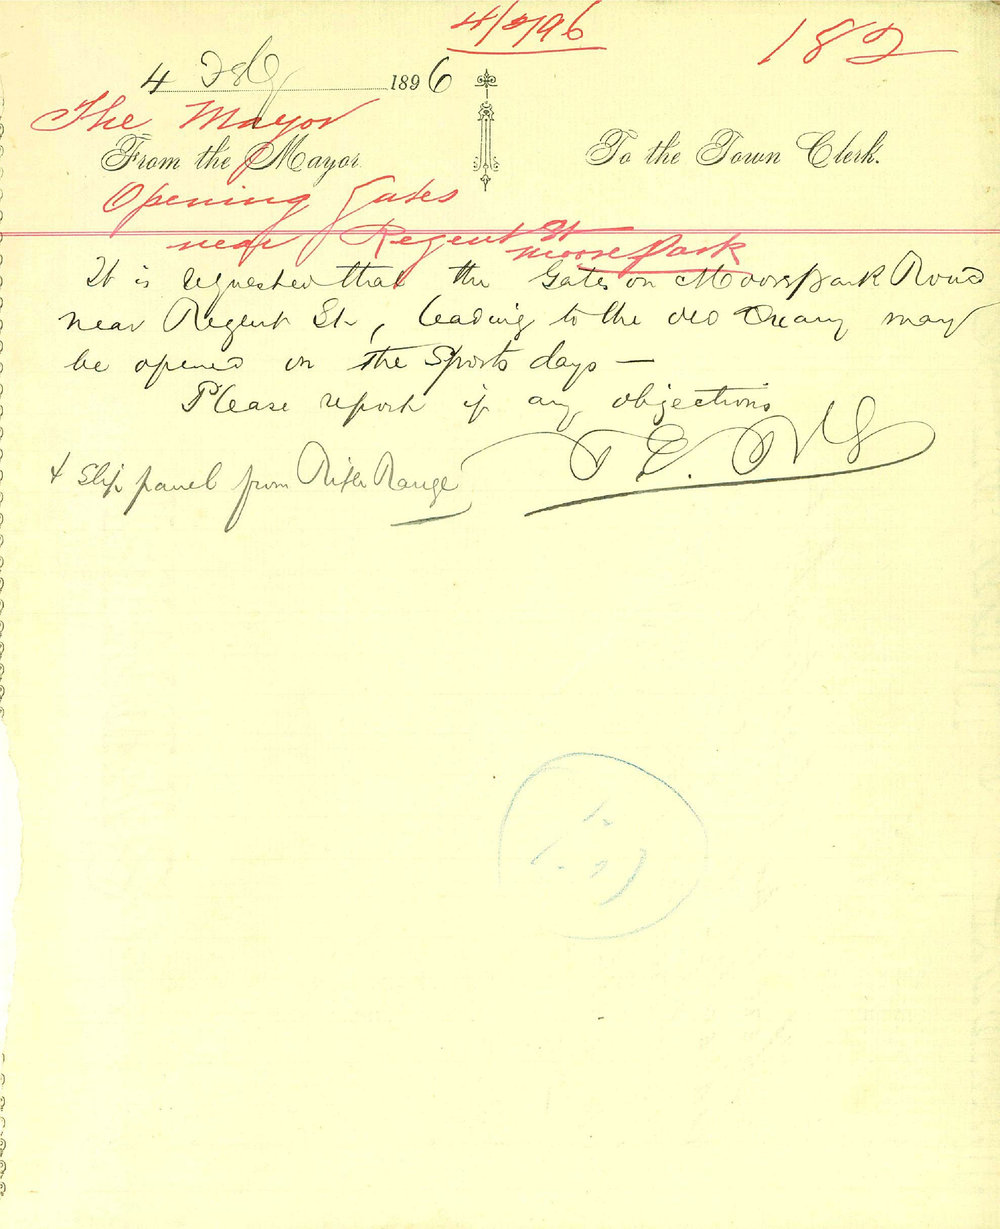 4/2/96
182
4 Feb 1896
The Mayor
From the Mayor
To the Town Clerk.
Opening Gates
near Regent St
Moore Park
It is requested that the Gates on Moorepark Road
near Regent St, leading to the old Quarry may
be opened on the Sports days —
Please report if any objections
& slip panel from Rifle Range